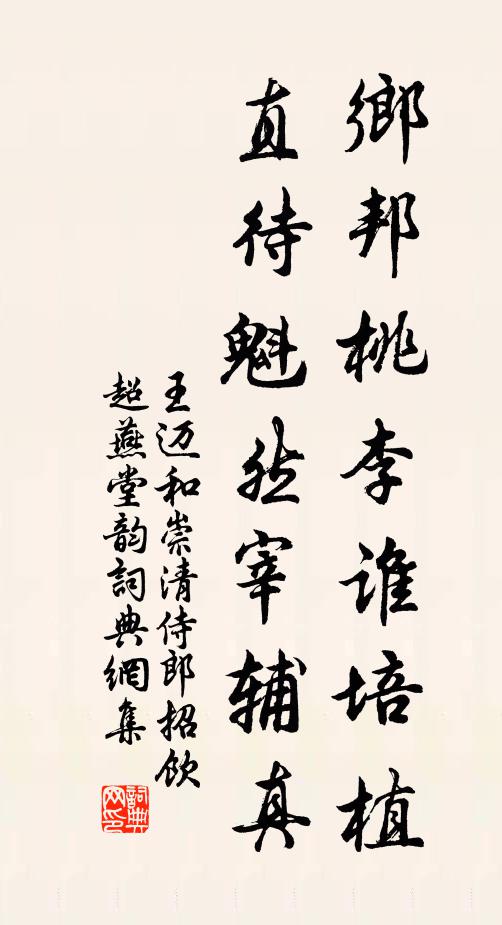 鄉邦桃李誰培植
直待魁然宰輔真
王迈和崇清侍郎招飲
超燕堂韵詞典網集
詞典网印